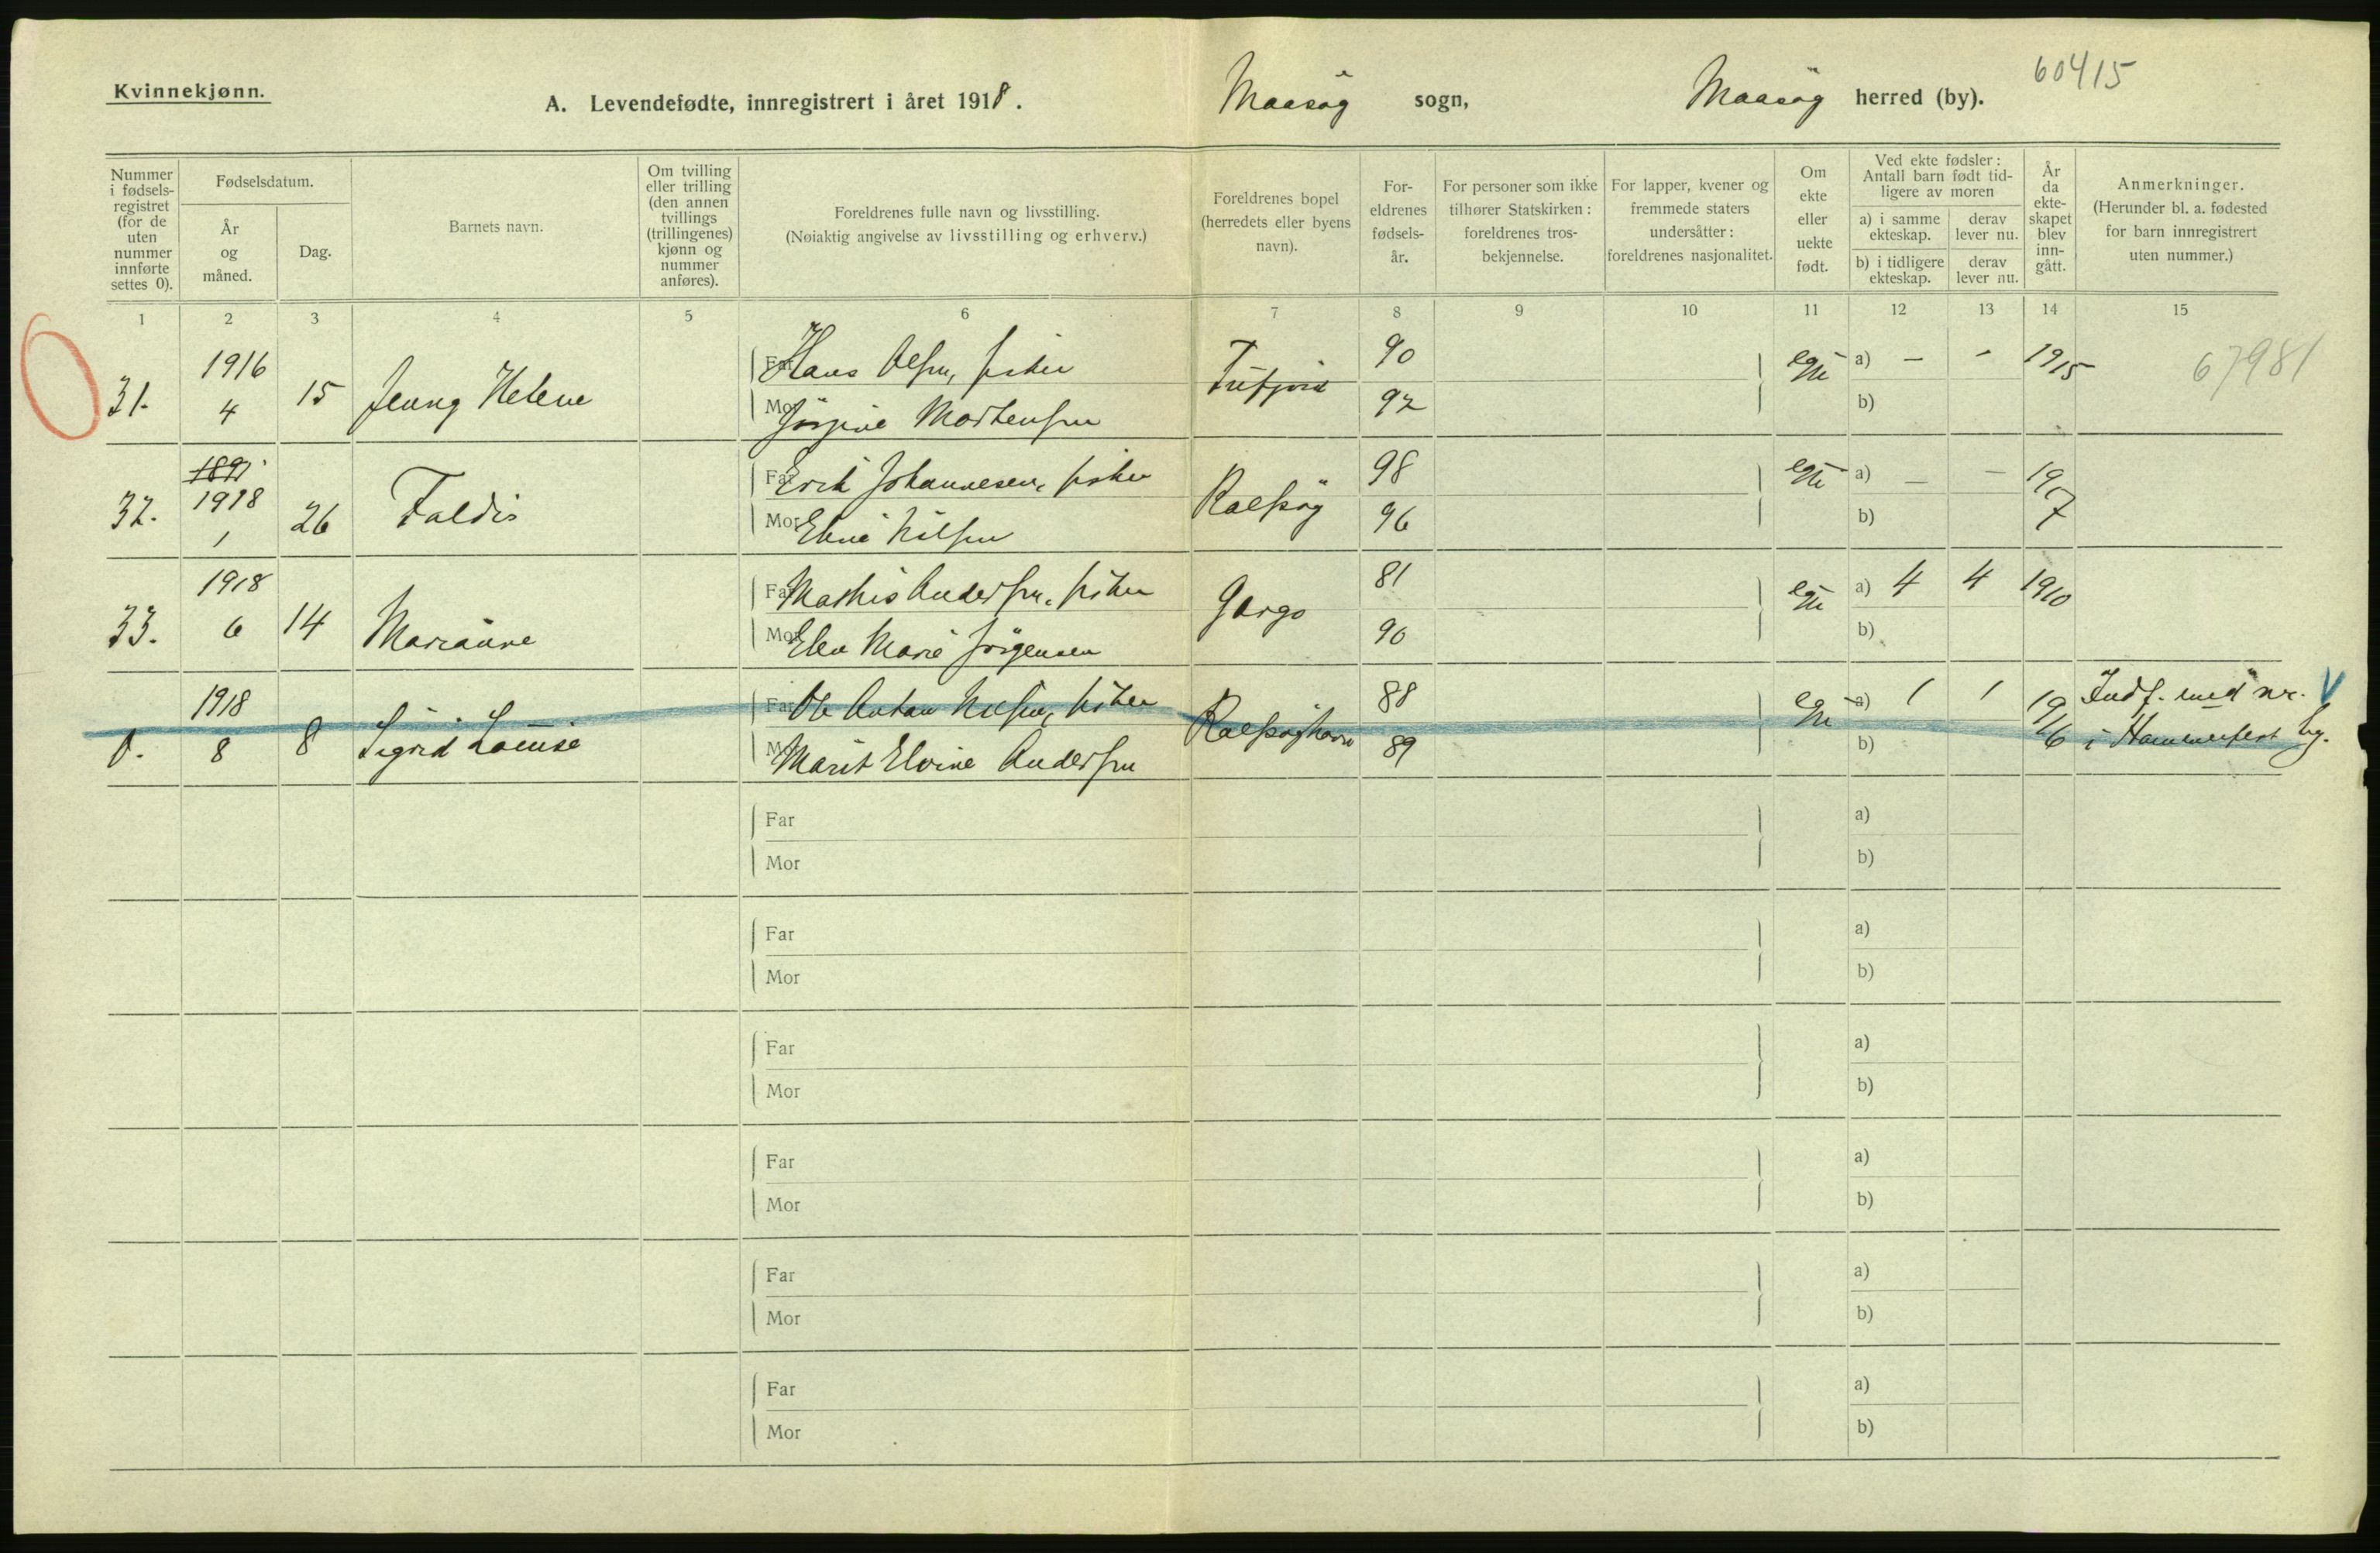 Kvinnekjønn.
A. Levendefødte, innregistrert i året 1918.
Maasøy sogn,
Maasøy herred (by).
60415
Nummer i fødsels-registret (for de uten nummer innførte settes 0).
Fødselsdatum.
År og måned.
Dag.
Barnets navn.
Om tvilling eller trilling (den annen tvillings (trillingenes) kjønn og nummer anføres).
Foreldrenes fulle navn og livsstilling.
(Nøiaktig angivelse av livsstilling og erhverv.)
Foreldrenes bopel (herredets eller byens navn).
For-eldrenes fødsels-år.
For personer som ikke tilhører Statskirken: foreldrenes tros-bekjennelse.
For lapper, kvener og fremmede staters undersåtter: foreldrenes nasjonalitet.
Om ekte eller uekte født.
Ved ekte fødsler: Antall barn født tid-ligere av moren
a) i samme ekteskap.
derav lever nu.
b) i tidligere ekteskap.
derav lever nu.
År da ekte-skapet blev inn-gått.
Anmerkninger.
(Herunder bl. a. fødested for barn innregistrert uten nummer.)
1 2 3 4 5 6 7 8 9 10 11 12 13 14 15
31. 1916 4 15 Jenny Helene
Far Hans Olsen, fisker
Mor Jørgine Mortensen
Tufjord 90 92 a) — - 1915 67981
b)
32. 1891 1918 1 26 Faldis
Far Erik Johannesen, fisker
Mor Eline Nilsen
Rolfsøy 98 96 a) — — 1917
b)
33. 1918 6 14 Marianne
Far Mathis Andersen, fisker
Mor Elen Marie Jörgensen
Gargo 81 90 a) 4 4 1910
b)
0. 1918 8 8 Sigrid Louise
Far Ole Anton Nilsen, fisker
Mor Marit Elvine Andersen
Rolfsøyhavn 88 89 a) 1 1 1916 Indf. med nr. V
b) i Hammerfest by.
Far a)
Mor b)
Far a)
Mor b)
Far a)
Mor b)
Far a)
Mor b)
Far a)
Mor b)
Far a)
Mor b)